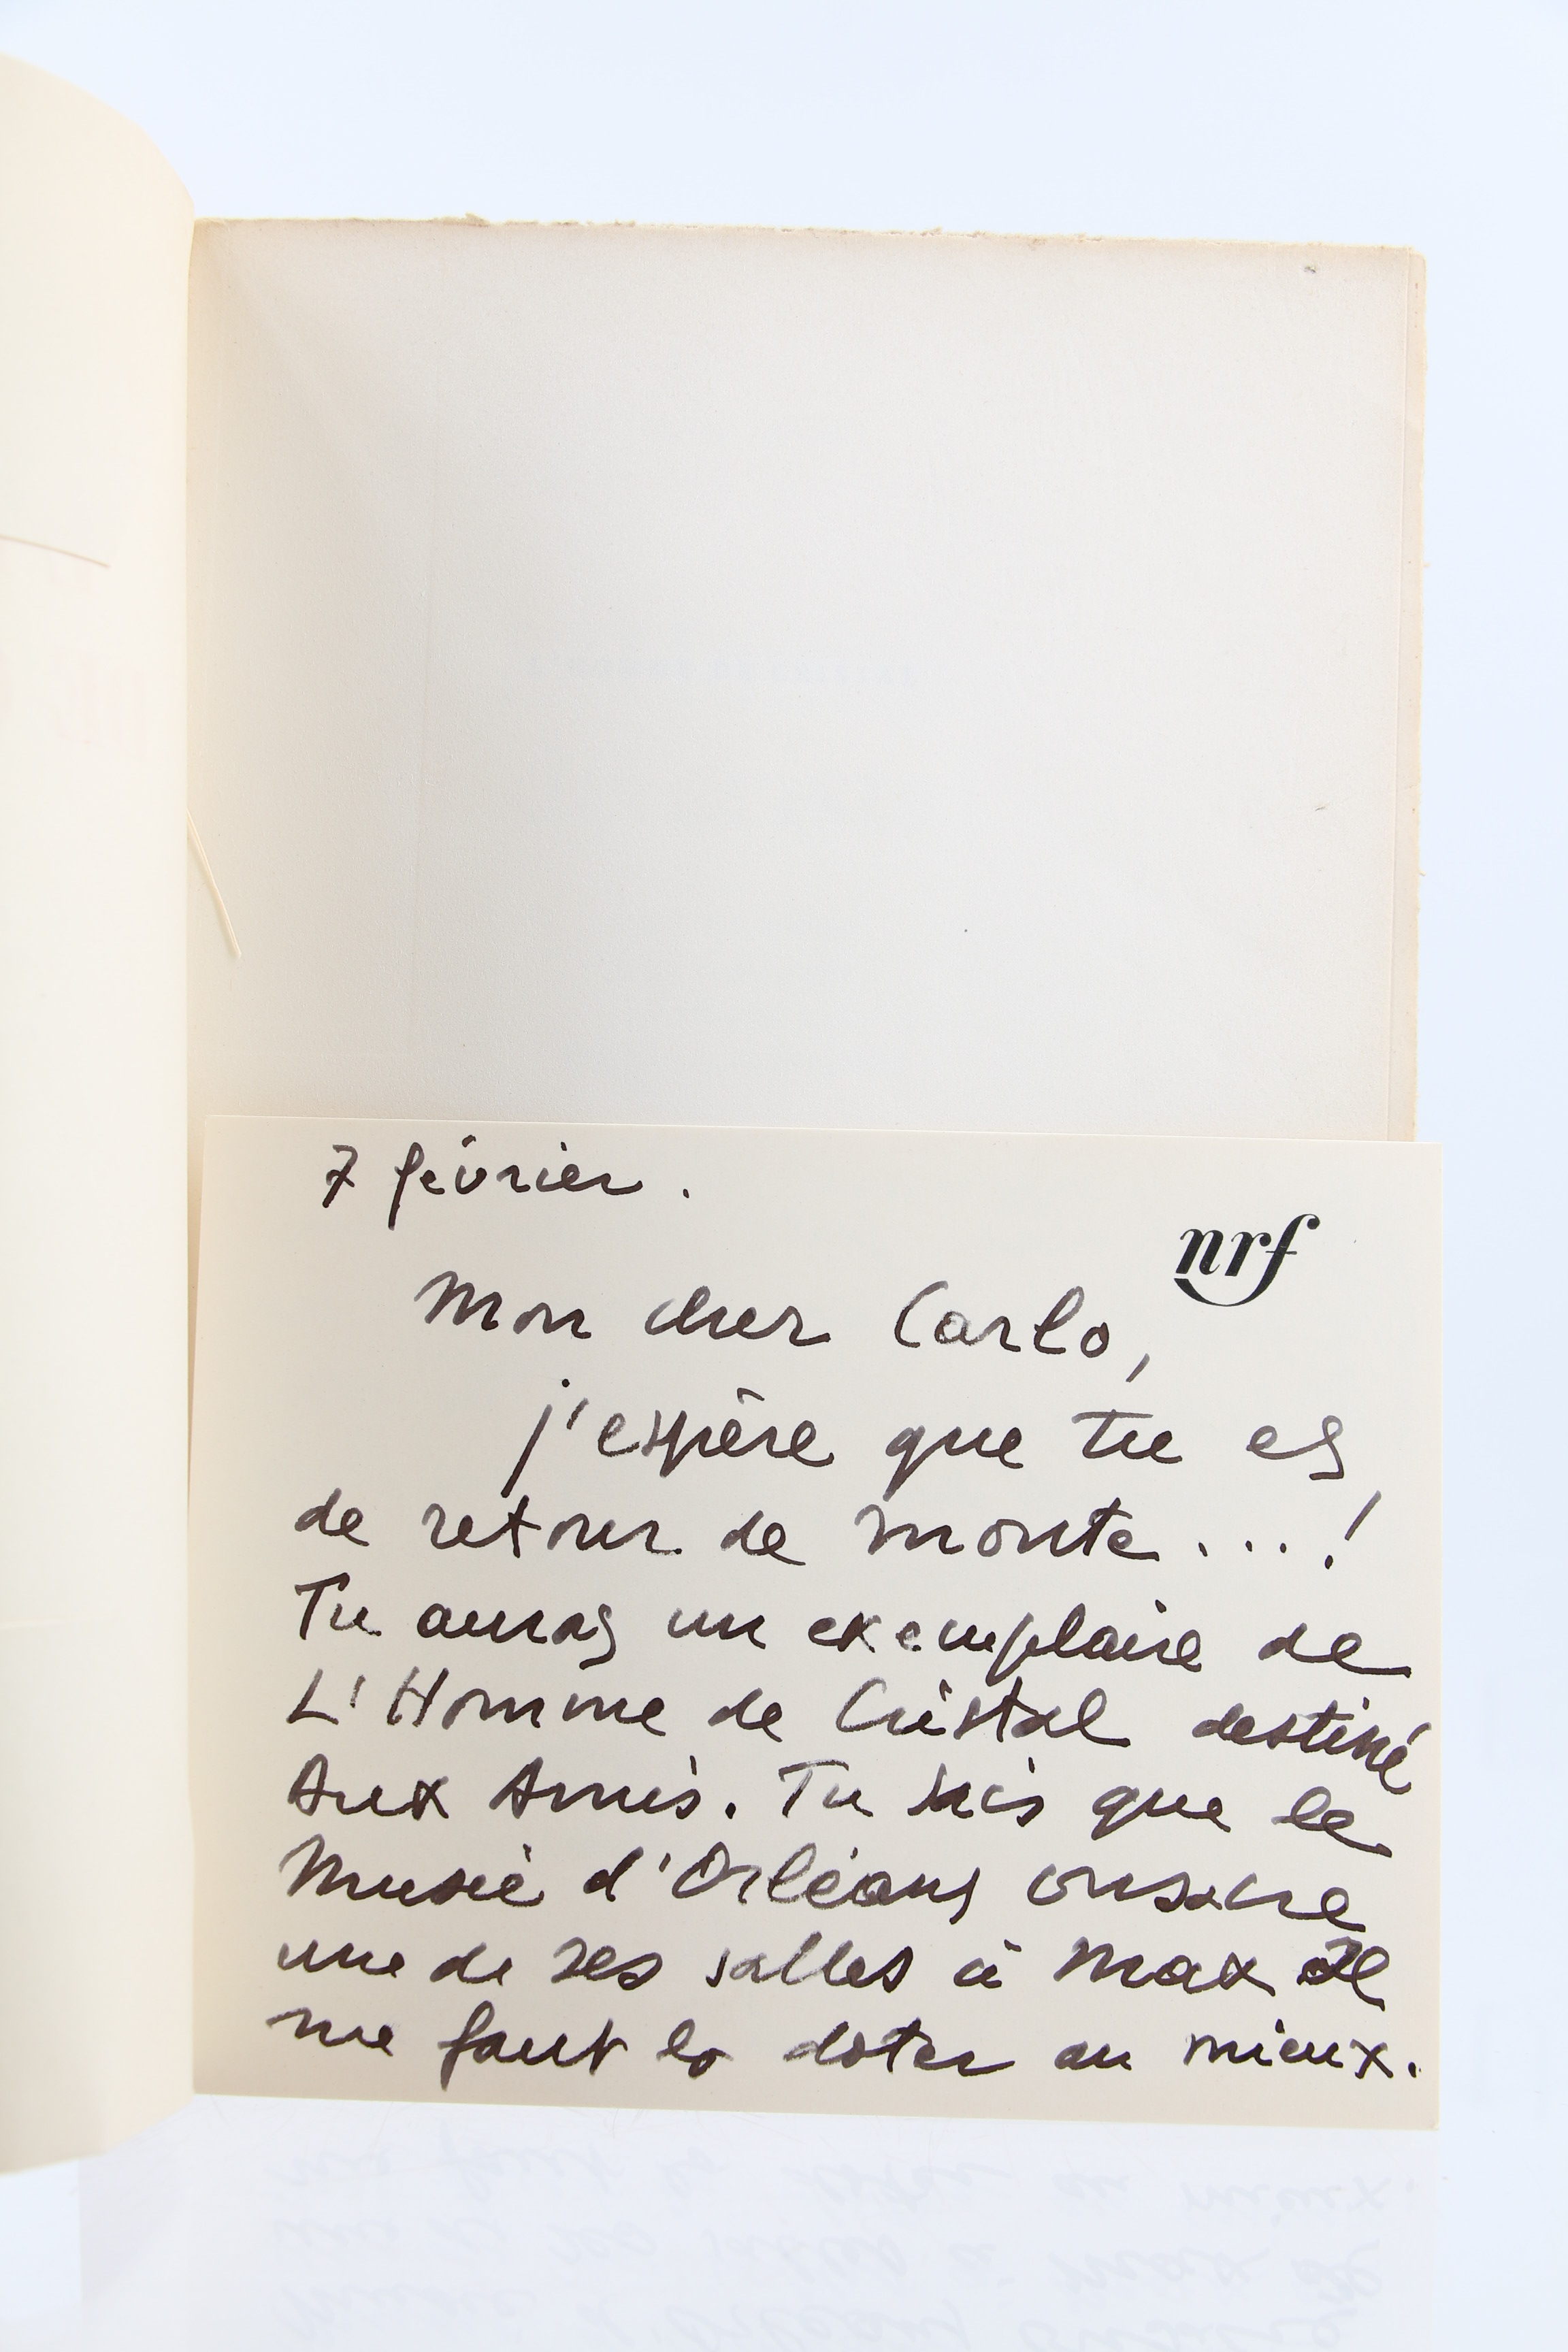 7 février.
nrf
Mon cher Carlo,
j'espère que tu es
de retour de monte....!
Tu auras un exemplaire de
L'Homme de Cristal destiné
Aux Amis. Tu sais que le
Musée d'Orléans consacre
une de ses salles à Max Il
me faut la doter au mieux.